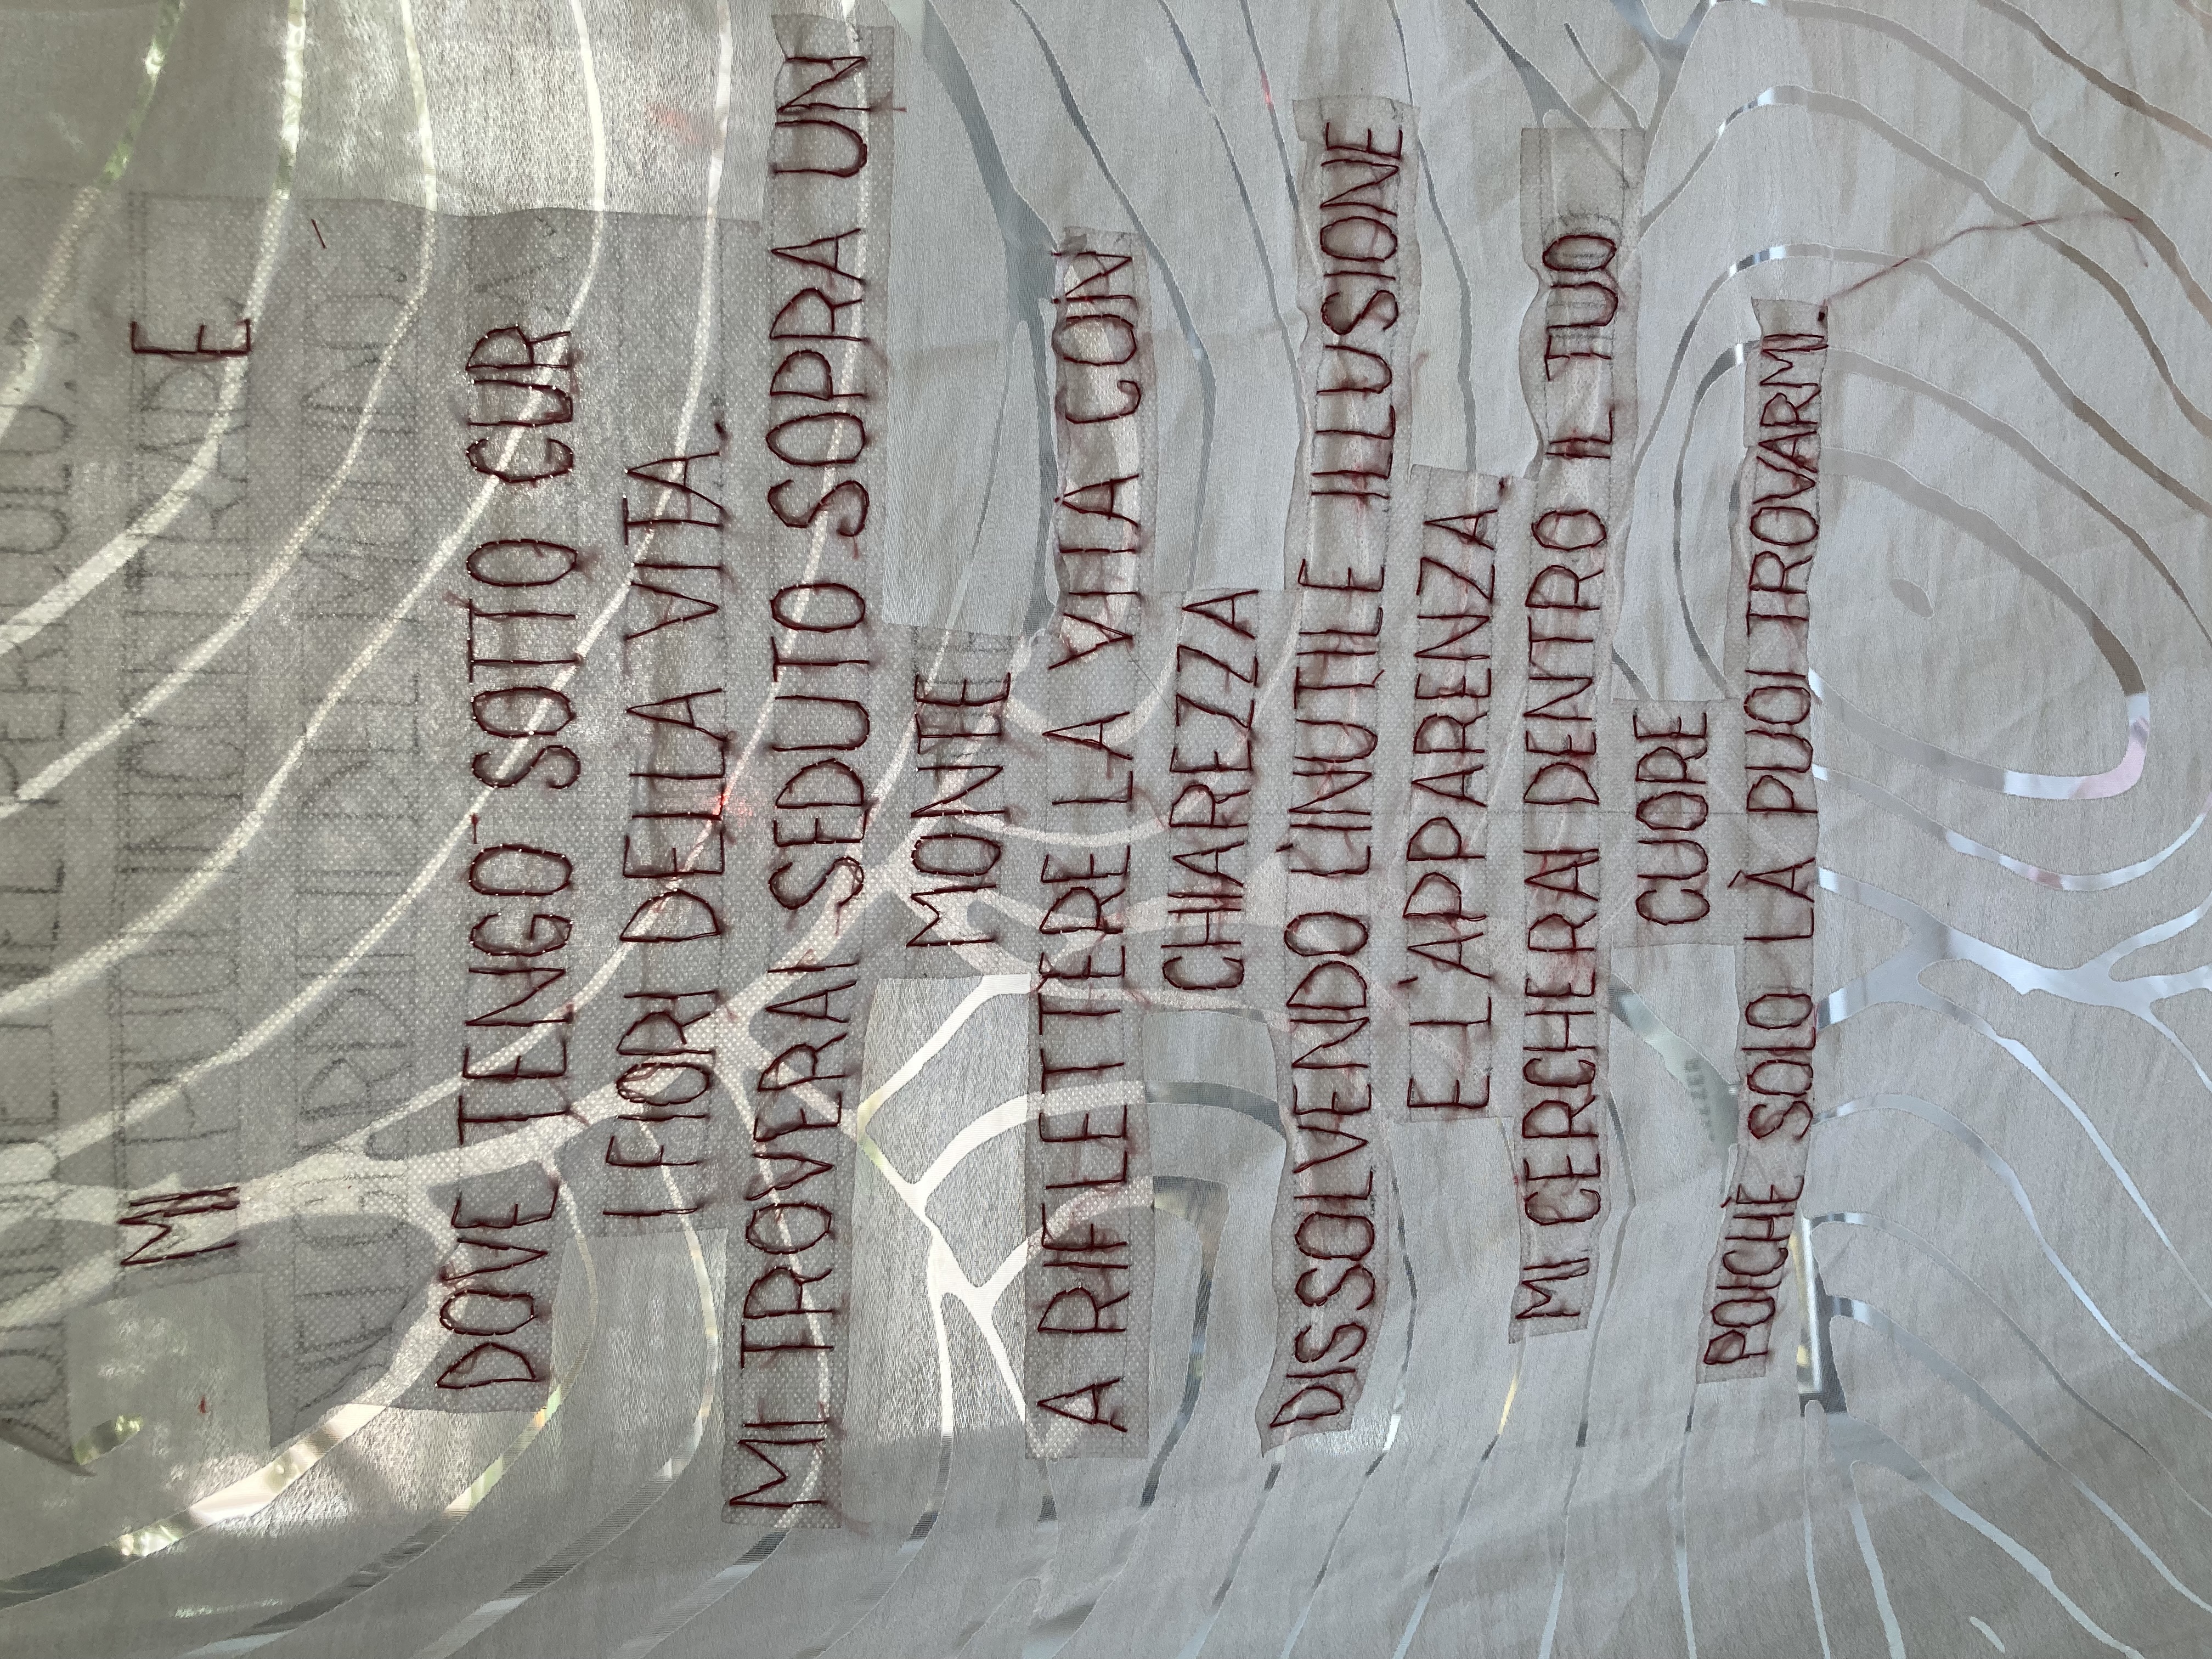 MI PUOI INCONTRARE
DOVE TENGO SOTTO CUR
I FIORI DELLA VITA.
MI TROVERAI SEDUTO SOPRA UN
MONTE
A RIFLETTERE LA VITA CON
CHIAREZZA
DISSOLVENDO L'INUTILE ILLUSIONE
E L'APPARENZA.
MI CERCHERAI DENTRO IL TUO
CUORE
POICHÈ SOLO LÀ PUOI TROVARMI.